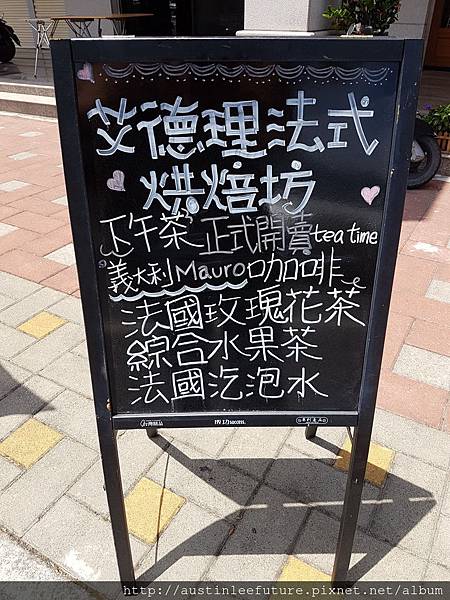 艾德理法式
烘焙坊
下午茶 正式開賣 tea time
義大利Mauro咖啡
法國玫瑰花茶
綜合水果茶
法國汽泡水
http://austinleefuture.pixnet.net/album